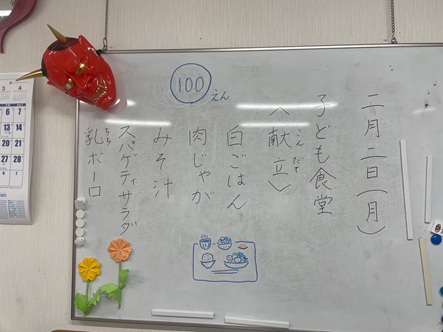 二月二日(月)
子ども食堂
〈献立〉
こんだて
白ごはん
肉じゃが
みそ汁
スパゲテサラダ
乳ボーロ
100えん
3 4
6 7
13 14
20 21
27 28